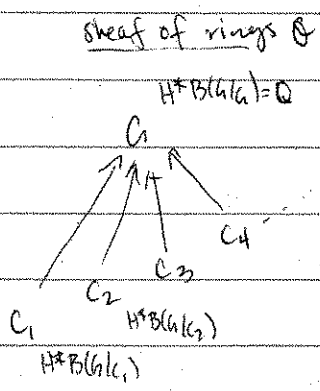 sheaf of rings O
H*B(G/G)=Q
G
C4
C3
C2
H*B(G/C2)
C1
H*B(G/C1)